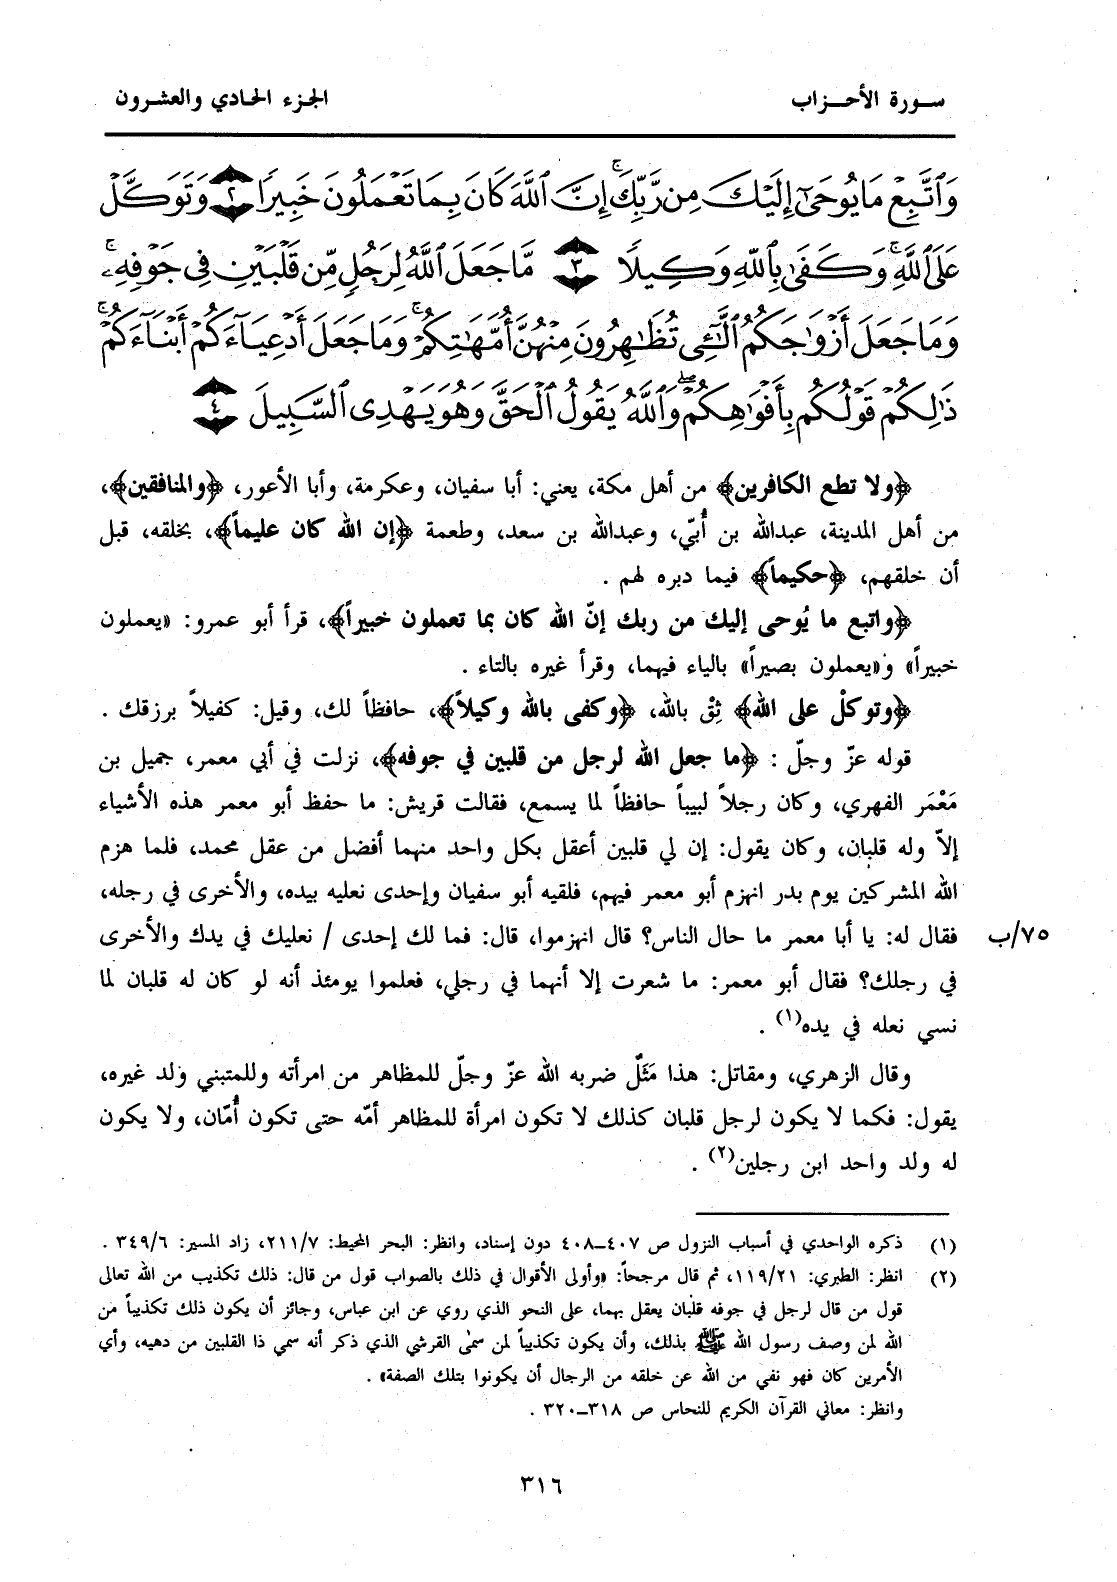 سورة الأحزاب
الجزء الحادي والعشرون
وَٱتَّبِعۡ مَا يُوحَىٰٓ إِلَيۡكَ مِن رَّبِّكَۚ إِنَّ ٱللَّهَ كَانَ بِمَا تَعۡمَلُونَ خَبِيرٗا ٢ وَتَوَكَّلۡ
عَلَى ٱللَّهِۚ وَكَفَىٰ بِٱللَّهِ وَكِيلٗا ٣ مَّا جَعَلَ ٱللَّهُ لِرَجُلٖ مِّن قَلۡبَيۡنِ فِي جَوۡفِهِۦۚ
وَمَا جَعَلَ أَزۡوَٰجَكُمُ ٱلَّٰٓـِٔي تُظَٰهِرُونَ مِنۡهُنَّ أُمَّهَٰتِكُمۡۚ وَمَا جَعَلَ أَدۡعِيَآءَكُمۡ أَبۡنَآءَكُمۡۚ
ذَٰلِكُمۡ قَوۡلُكُم بِأَفۡوَٰهِكُمۡۖ وَٱللَّهُ يَقُولُ ٱلۡحَقَّ وَهُوَ يَهۡدِي ٱلسَّبِيلَ ٤
﴿ولا تطع الكافرين﴾ من أهل مكة، يعني: أبا سفيان، وعكرمة، وأبا الأعور، ﴿والمنافقين﴾،
من أهل المدينة، عبدالله بن أُبيّ، وعبدالله بن سعد، وطعمة ﴿إن الله كان عليماً﴾، بخلقه، قبل
أن خلقهم، ﴿حكيماً﴾ فيما دبره لهم .
﴿واتبع ما يُوحى إليك من ربك إنّ الله كان بما تعملون خبيراً﴾، قرأ أبو عمرو: «يعملون
خبيراً» و«يعملون بصيراً» بالياء فيهما، وقرأ غيره بالتاء .
﴿وتوكلْ على الله﴾ ثِقْ بالله، ﴿وكفى بالله وكيلاً﴾، حافظاً لك، وقيل: كفيلاً برزقك .
قوله عزّ وجلّ : ﴿ما جعل الله لرجل من قلبين في جوفه﴾، نزلت في أبي معمر، جميل بن
مَعْمَر الفهري، وكان رجلاً لبيباً حافظاً لما يسمع، فقالت قريش: ما حفظ أبو معمر هذه الأشياء
إلاّ وله قلبان، وكان يقول: إن لي قلبين أعقل بكل واحد منهما أفضل من عقل محمد، فلما هزم
الله المشركين يوم بدر انهزم أبو معمر فيهم، فلقيه أبو سفيان وإحدى نعليه بيده، والأخرى في رجله،
فقال له: يا أبا معمر ما حال الناس؟ قال انهزموا، قال: فما لك إحدى / نعليك في يدك والأخرى
٧٥/ب
في رجلك؟ فقال أبو معمر: ما شعرت إلا أنهما في رجلي، فعلموا يومئذ أنه لو كان له قلبان لما
نسي نعله في يده(١) .
وقال الزهري، ومقاتل: هذا مَثَلٌ ضربه الله عزّ وجلّ للمظاهر من امرأته وللمتبني ولد غيره،
يقول: فكما لا يكون لرجل قلبان كذلك لا تكون امرأة للمظاهر أمّه حتى تكون أُمّان، ولا يكون
له ولد واحد ابن رجلين(٢) .
(١) ذكره الواحدي في أسباب النزول ص ٤٠٧-٤٠٨ دون إسناد، وانظر: البحر المحيط: ٢١١/٧، زاد المسير: ٣٤٩/٦ .
(٢) انظر: الطبري: ١١٩/٢١، ثم قال مرجحاً: «وأولى الأقوال في ذلك بالصواب قول من قال: ذلك تكذيب من الله تعالى
قول من قال لرجل في جوفه قلبان يعقل بهما، على النحو الذي روي عن ابن عباس، وجائز أن يكون ذلك تكذيباً من
الله لمن وصف رسول الله ﷺ بذلك، وأن يكون تكذيباً لمن سمى القرشي الذي ذكر أنه سمي ذا القلبين من دهيه، وأي
الأمرين كان فهو نفي من الله عن خلقه من الرجال أن يكونوا بتلك الصفة» .
وانظر: معاني القرآن الكريم للنحاس ص ٣١٨-٣٢٠ .
٣١٦